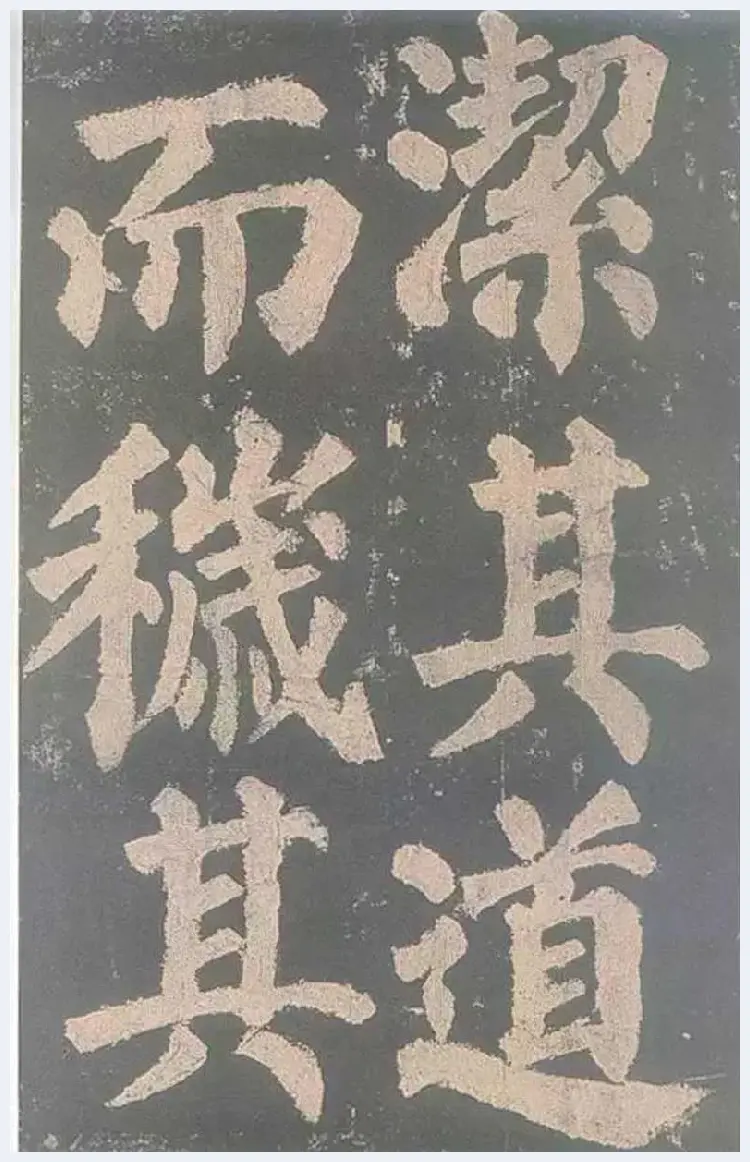 潔其道
而穢其